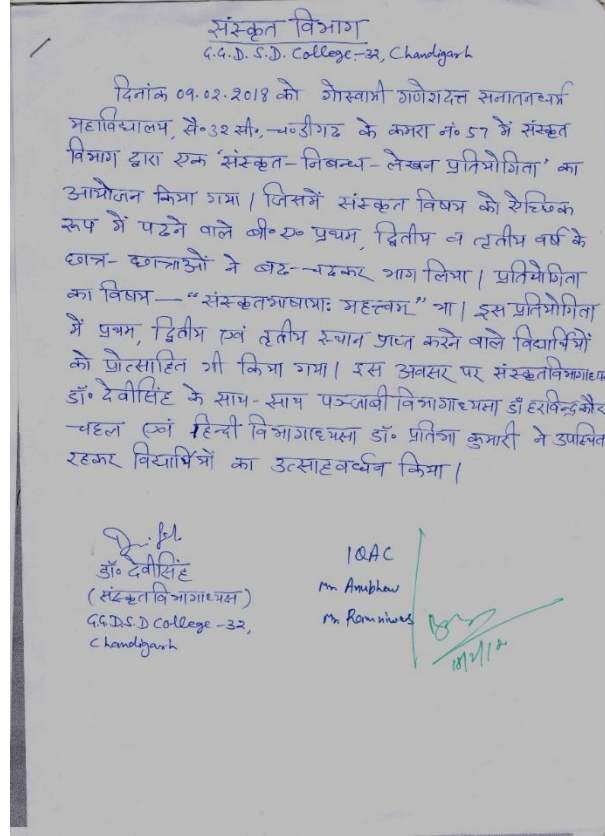 संस्कृत विभाग
G.G.D.S.D. College-32, Chandigarh
दिनांक 09.02.2018 को गोस्वामी गणेशदत्त सनातनधर्म
महाविद्यालय, सै॰ 32 सी॰, चण्डीगढ के कमरा नं॰ 57 में संस्कृत
विभाग द्वारा एक 'संस्कृत-निबन्ध-लेखन प्रतियोगिता' का
आयोजन किया गया। जिसमें संस्कृत विषय को ऐच्छिक
रूप में पढने वाले बी॰ए॰ प्रथम, द्वितीय व तृतीय वर्ष के
छात्र-छात्राओं ने बढ-चढकर भाग लिया। प्रतियोगिता
का विषय — "संस्कृतभाषाया: महत्त्वम्" था। इस प्रतियोगिता
में प्रथम, द्वितीय एवं तृतीय स्थान प्राप्त करने वाले विद्यार्थियों
को प्रोत्साहित भी किया गया। इस अवसर पर संस्कृतविभागाध्यक्ष
डॉ॰ देवीसिंह के साथ-साथ पञ्जाबी विभागाध्यक्षा डॉ हरविन्द्र कौर
चहल एवं हिन्दी विभागाध्यक्षा डॉ॰ प्रतिभा कुमारी ने उपस्थित
रहकर विद्यार्थियों का उत्साहवर्धन किया।
डॉ॰ देवीसिंह
(संस्कृतविभागाध्यक्ष)
G.G.D.S.D College-32,
Chandigarh
IQAC
Mr Anubhav
Mr Ramniwas